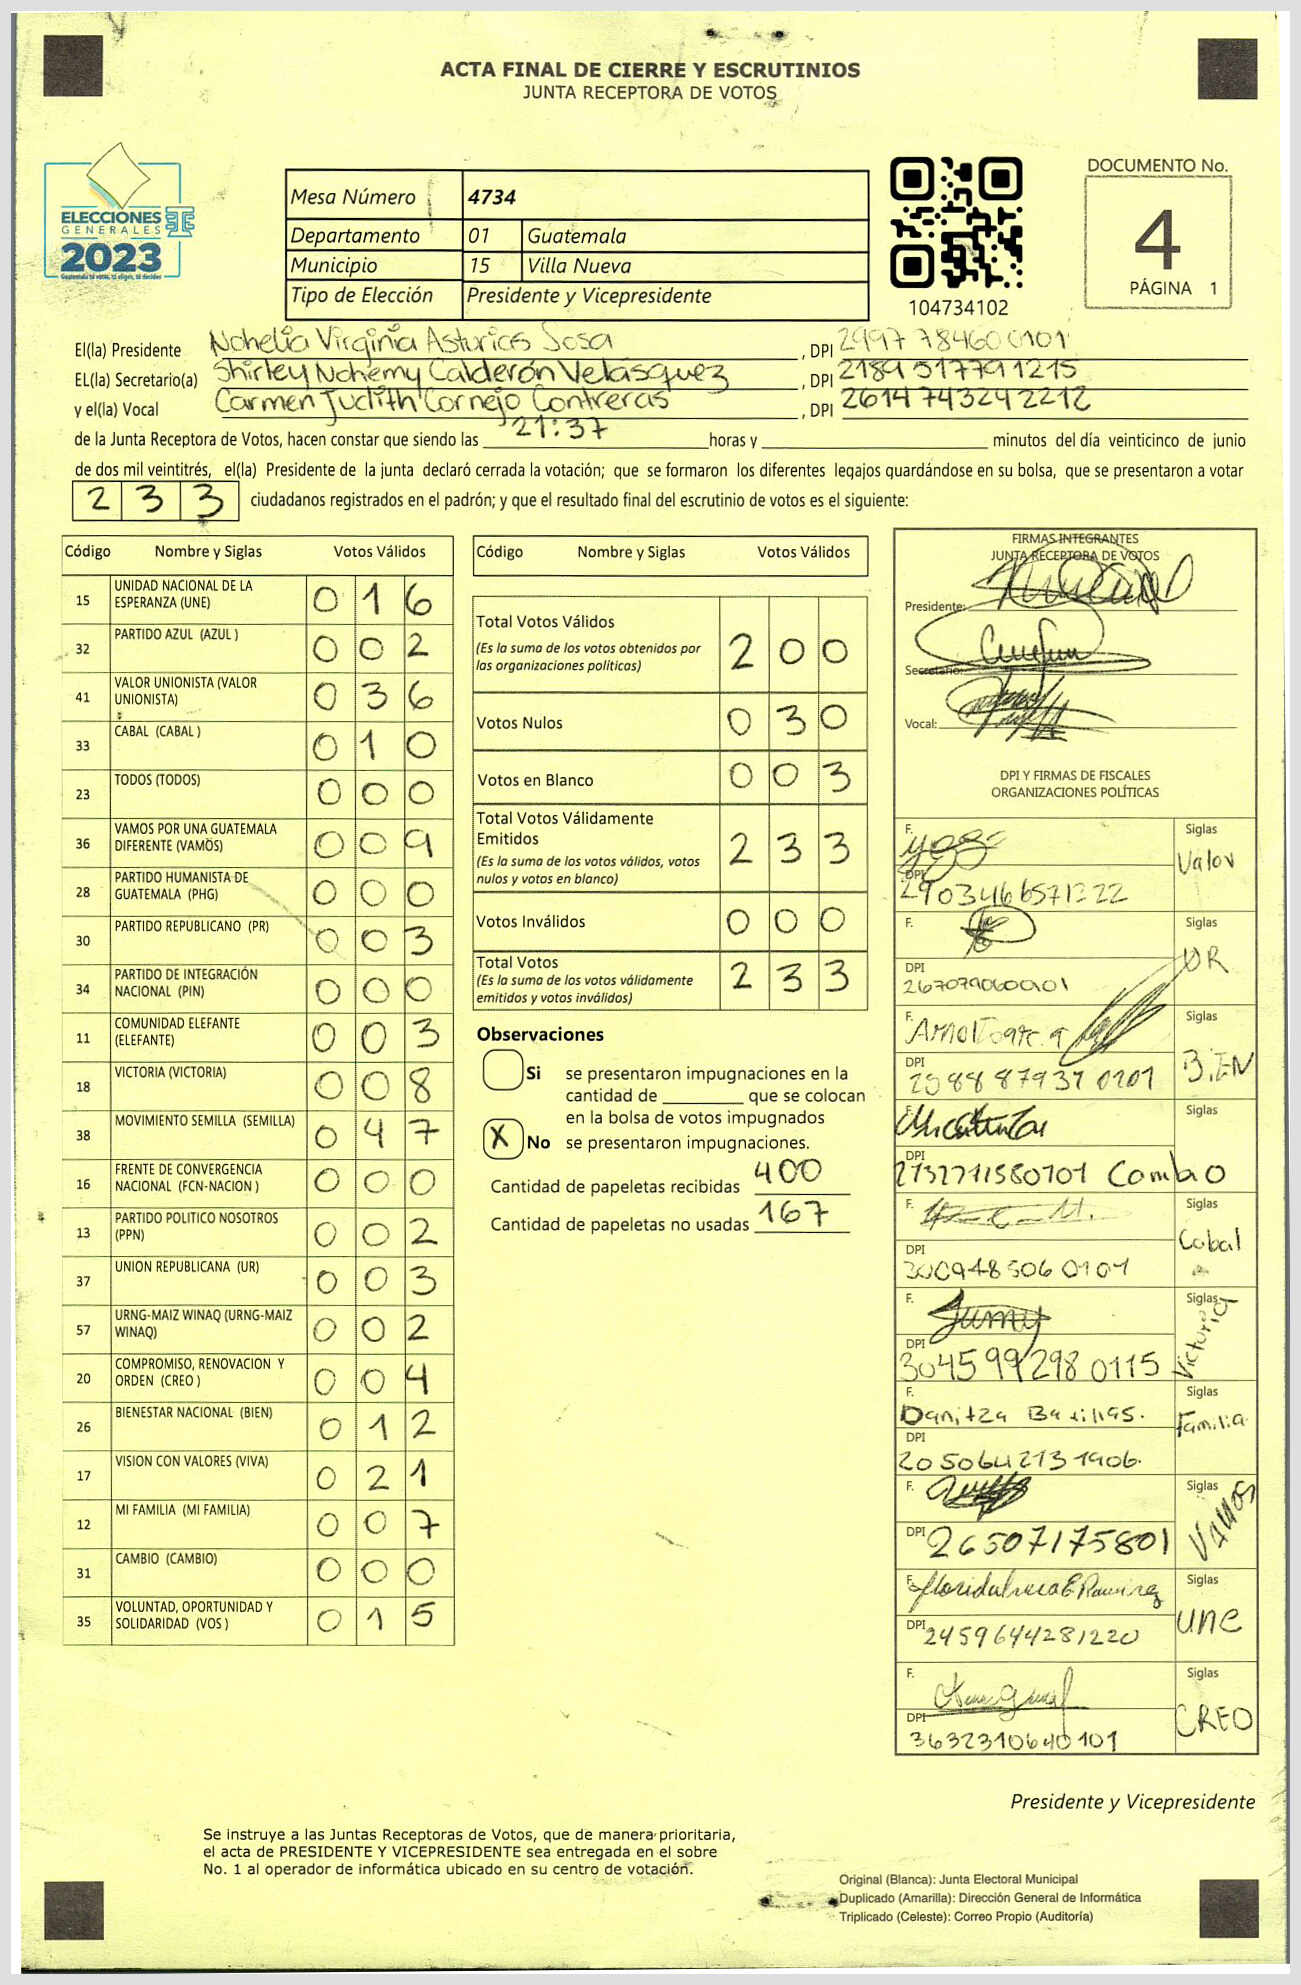 ACTA FINAL DE CIERRE Y ESCRUTINIOS
JUNTA RECEPTORA DE VOTOS
ELECCIONES
GENERALES
2023
Mesa Número 4734
Departamento 01 Guatemala
Municipio 15 Villa Nueva
Tipo de Elección Presidente y Vicepresidente
104734102
DOCUMENTO No.
4
PÁGINA 1
El(la) Presidente Nohelia Virginia Asturias Sosa, DPI 2997 78460 0101
EL(la) Secretario(a) Shirley Nohemy Calderón Velasquez, DPI 2189 51779 1215
y el(la) Vocal Carmen Judith Cornejo Contreras, DPI 2614 74324 2212
de la Junta Receptora de Votos, hacen constar que siendo las 21:37 horas y minutos del día veinticinco de junio
de dos mil veintitrés, el(la) Presidente de la junta declaró cerrada la votación; que se formaron los diferentes legajos guardándose en su bolsa, que se presentaron a votar
233 ciudadanos registrados en el padrón; y que el resultado final del escrutinio de votos es el siguiente:
Código Nombre y Siglas Votos Válidos
15 UNIDAD NACIONAL DE LA ESPERANZA (UNE) 016
32 PARTIDO AZUL (AZUL ) 002
41 VALOR UNIONISTA (VALOR UNIONISTA) 036
33 CABAL (CABAL ) 010
23 TODOS (TODOS) 000
36 VAMOS POR UNA GUATEMALA DIFERENTE (VAMOS) 009
28 PARTIDO HUMANISTA DE GUATEMALA (PHG) 000
30 PARTIDO REPUBLICANO (PR) 003
34 PARTIDO DE INTEGRACIÓN NACIONAL (PIN) 000
11 COMUNIDAD ELEFANTE (ELEFANTE) 003
18 VICTORIA (VICTORIA) 008
38 MOVIMIENTO SEMILLA (SEMILLA) 047
16 FRENTE DE CONVERGENCIA NACIONAL (FCN-NACION ) 000
13 PARTIDO POLITICO NOSOTROS (PPN) 002
37 UNION REPUBLICANA (UR) 003
57 URNG-MAIZ WINAQ (URNG-MAIZ WINAQ) 002
20 COMPROMISO, RENOVACION Y ORDEN (CREO ) 004
26 BIENESTAR NACIONAL (BIEN) 012
17 VISION CON VALORES (VIVA) 021
12 MI FAMILIA (MI FAMILIA) 007
31 CAMBIO (CAMBIO) 000
35 VOLUNTAD, OPORTUNIDAD Y SOLIDARIDAD (VOS ) 015
Código Nombre y Siglas Votos Válidos
Total Votos Válidos 200
(Es la suma de los votos obtenidos por
las organizaciones políticas)
Votos Nulos 030
Votos en Blanco 003
Total Votos Válidamente
Emitidos 233
(Es la suma de los votos válidos, votos
nulos y votos en blanco)
Votos Inválidos 000
Total Votos 233
(Es la suma de los votos válidamente
emitidos y votos inválidos)
Observaciones
Si se presentaron impugnaciones en la
cantidad de que se colocan
en la bolsa de votos impugnados
X No se presentaron impugnaciones.
Cantidad de papeletas recibidas 400
Cantidad de papeletas no usadas 167
FIRMAS INTEGRANTES
JUNTA RECEPTORA DE VOTOS
Presidente:
Secretario:
Vocal:
DPI Y FIRMAS DE FISCALES
ORGANIZACIONES POLÍTICAS
F. Siglas Valor
DPI
F. Siglas UR
DPI 2670790600101
F. Siglas B.IEN
DPI
F. Siglas
DPI 2132711580101 Cambio
F. Siglas Cabal
DPI 3009485060101
F. Siglas Victoria
DPI 3045992980115
F. Danitza Siglas Familia
DPI 2050642131906.
F. Siglas VAMOS
DPI 26507175801
F. Siglas UNE
DPI 2459644281220
F. Siglas CREO
DPI 3632310640101
Presidente y Vicepresidente
Se instruye a las Juntas Receptoras de Votos, que de manera prioritaria,
el acta de PRESIDENTE Y VICEPRESIDENTE sea entregada en el sobre
No. 1 al operador de informática ubicado en su centro de votación.
Original (Blanca): Junta Electoral Municipal
Duplicado (Amarilla): Dirección General de Informática
Triplicado (Celeste): Correo Propio (Auditoría)